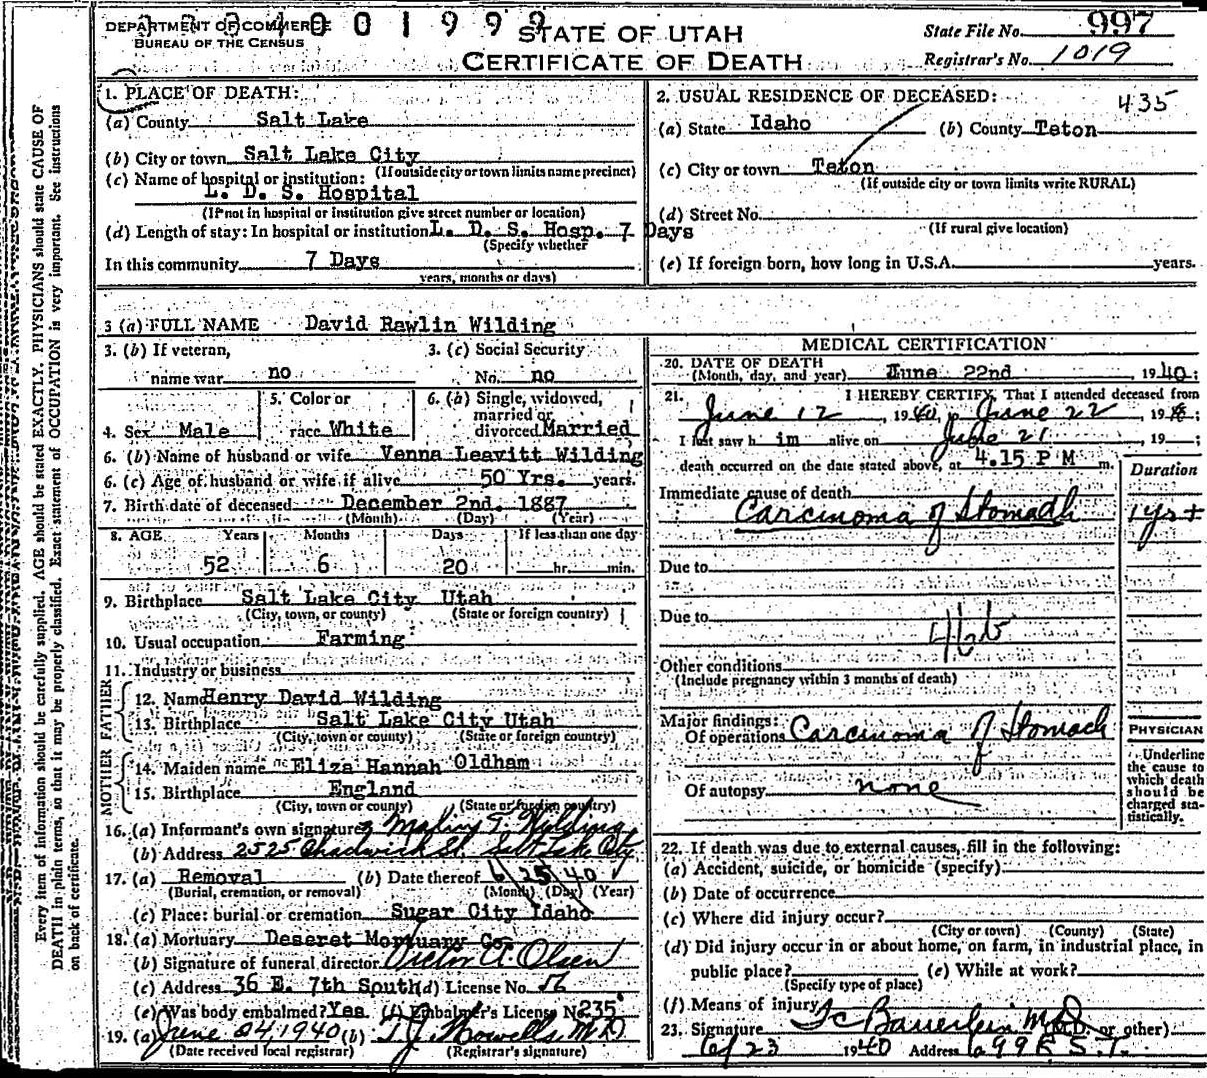 DEPARTMENT OF COMMERCE
BUREAU OF THE CENSUS
4 0 0 1 9 9 9
STATE OF UTAH
CERTIFICATE OF DEATH
State File No. 997
Registrar's No. 1019
1. PLACE OF DEATH:
(a) County Salt Lake
(b) City or town Salt Lake City
(If outside city or town limits name precinct)
(c) Name of hospital or institution:
L. D. S. Hospital
(If not in hospital or institution give street number or location)
(d) Length of stay: In hospital or institution L. D. S. Hosp. 7 Days
(Specify whether
In this community 7 Days
years, months or days)
2. USUAL RESIDENCE OF DECEASED: 435
(a) State Idaho (b) County Teton
(c) City or town Teton
(If outside city or town limits write RURAL)
(d) Street No.
(If rural give location)
(e) If foreign born, how long in U.S.A. years.
3 (a) FULL NAME David Rawlin Wilding
3. (b) If veteran, 3. (c) Social Security
name war no No. no
4. Sex Male
5. Color or
race White
6. (a) Single, widowed,
married or
divorced Married
6. (b) Name of husband or wife Venna Leavitt Wilding
6. (c) Age of husband or wife if alive 50 Yrs. years.
7. Birth date of deceased December 2nd. 1887
(Month) (Day) (Year)
8. AGE Years Months Days If less than one day
52 6 20 hr. min.
9. Birthplace Salt Lake City Utah
(City, town, or county) (State or foreign country)
10. Usual occupation Farming
11. Industry or business
FATHER
12. Name Henry David Wilding
13. Birthplace Salt Lake City Utah
(City, town or county) (State or foreign country)
MOTHER
14. Maiden name Eliza Hannah Oldham
15. Birthplace England
(City, town or county) (State or foreign country)
16. (a) Informant's own signature Wilding
(b) Address 2525 Chadwick St. Salt Lake City
17. (a) Removal (b) Date thereof 6 25 40
(Burial, cremation, or removal) (Month) (Day) (Year)
(c) Place: burial or cremation Sugar City Idaho
18. (a) Mortuary Deseret Mortuary Co.
(b) Signature of funeral director Victor A. Olsen
(c) Address 36 E. 7th South (d) License No.
(e) Was body embalmed? Yes. (f) Embalmer's License No. 235
19. (a) June 24, 1940 (b) T. J. Howells M.D.
(Date received local registrar) (Registrar's signature)
MEDICAL CERTIFICATION
20. DATE OF DEATH
(Month, day, and year) June 22nd 1940;
21. I HEREBY CERTIFY, That I attended deceased from
June 12, 1940, to June 22, 19
I last saw h im alive on June 21, 19
death occurred on the date stated above, at 4.15 P M m.
Duration
Immediate cause of death
Carcinoma of Stomach 1 yr +
Due to
Due to
46b
Other conditions
(Include pregnancy within 3 months of death)
Major findings:
Of operations Carcinoma of Stomach
Of autopsy none
PHYSICIAN
Underline
the cause to
which death
should be
charged sta-
tistically.
22. If death was due to external causes, fill in the following:
(a) Accident, suicide, or homicide (specify)
(b) Date of occurrence
(c) Where did injury occur?
(City or town) (County) (State)
(d) Did injury occur in or about home, on farm, in industrial place, in
public place? (e) While at work?
(Specify type of place)
(f) Means of injury
23. Signature Bauerlein M.D. (M.D. or other)
6/23 1940 Address 699 E. S. T.
Every item of information should be carefully supplied. AGE should be stated EXACTLY. PHYSICIANS should state CAUSE OF
DEATH in plain terms, so that it may be properly classified. Exact statement of OCCUPATION is very important. See instructions
on back of certificate.